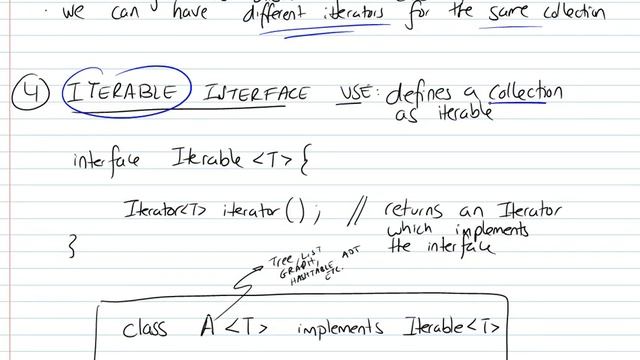 · we can have different iterators for the same collection
④ ITERABLE INTERFACE USE: defines a collection
as iterable
interface Iterable <T> {
Iterator<T> iterator(); // returns an Iterator
which implements
the interface
}
Tree, LIST
GRAPH,
HASHTABLE ADT
ETC.
class A <T> implements Iterable<T>